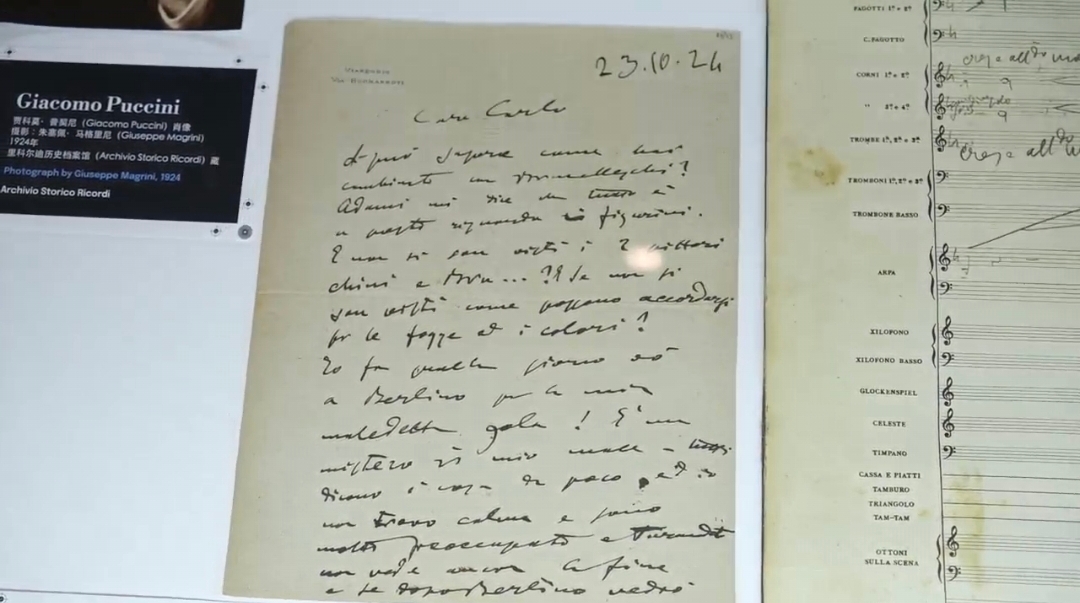 Giacomo Puccini
贾科莫·普契尼（Giacomo Puccini）肖像
摄影：朱塞佩·马格里尼（Giuseppe Magrini）
1924年
里科尔迪历史档案馆（Archivio Storico Ricordi）藏
Photograph by Giuseppe Magrini, 1924
Archivio Storico Ricordi
VIAREGGIO
VIA BUONARROTI
23.10.24
Caro Carlo
si può sapere come
combinato con Brunelleschi?
Adami mi dice che tutto è
a posto riguardo figurini.
E non si son visti i 2 pittori
chini e Bru...? E se non si
son visti come possono accordarsi
per le fogge ed i colori?
Io fra qualche giorno
a Berlino per la mia
maledetta gola! E' un
mistero il mio male - tutti
dicono è cosa da poco ed io
non trovo calma e sono
molto preoccupato e Turandot
non vede ancora la fine
e se dopo Berlino vedrò
FAGOTTI 1º e 2º
C. FAGOTTO
CORNI 1º e 2º
" 3º e 4º
TROMBE 1ª, 2ª e 3ª
TROMBONI 1º, 2º e 3º
TROMBONE BASSO
ARPA
XILOFONO
XILOFONO BASSO
GLOCKENSPIEL
CELESTE
TIMPANO
CASSA E PIATTI
TAMBURO
TRIANGOLO
TAM-TAM
OTTONI
SULLA SCENA